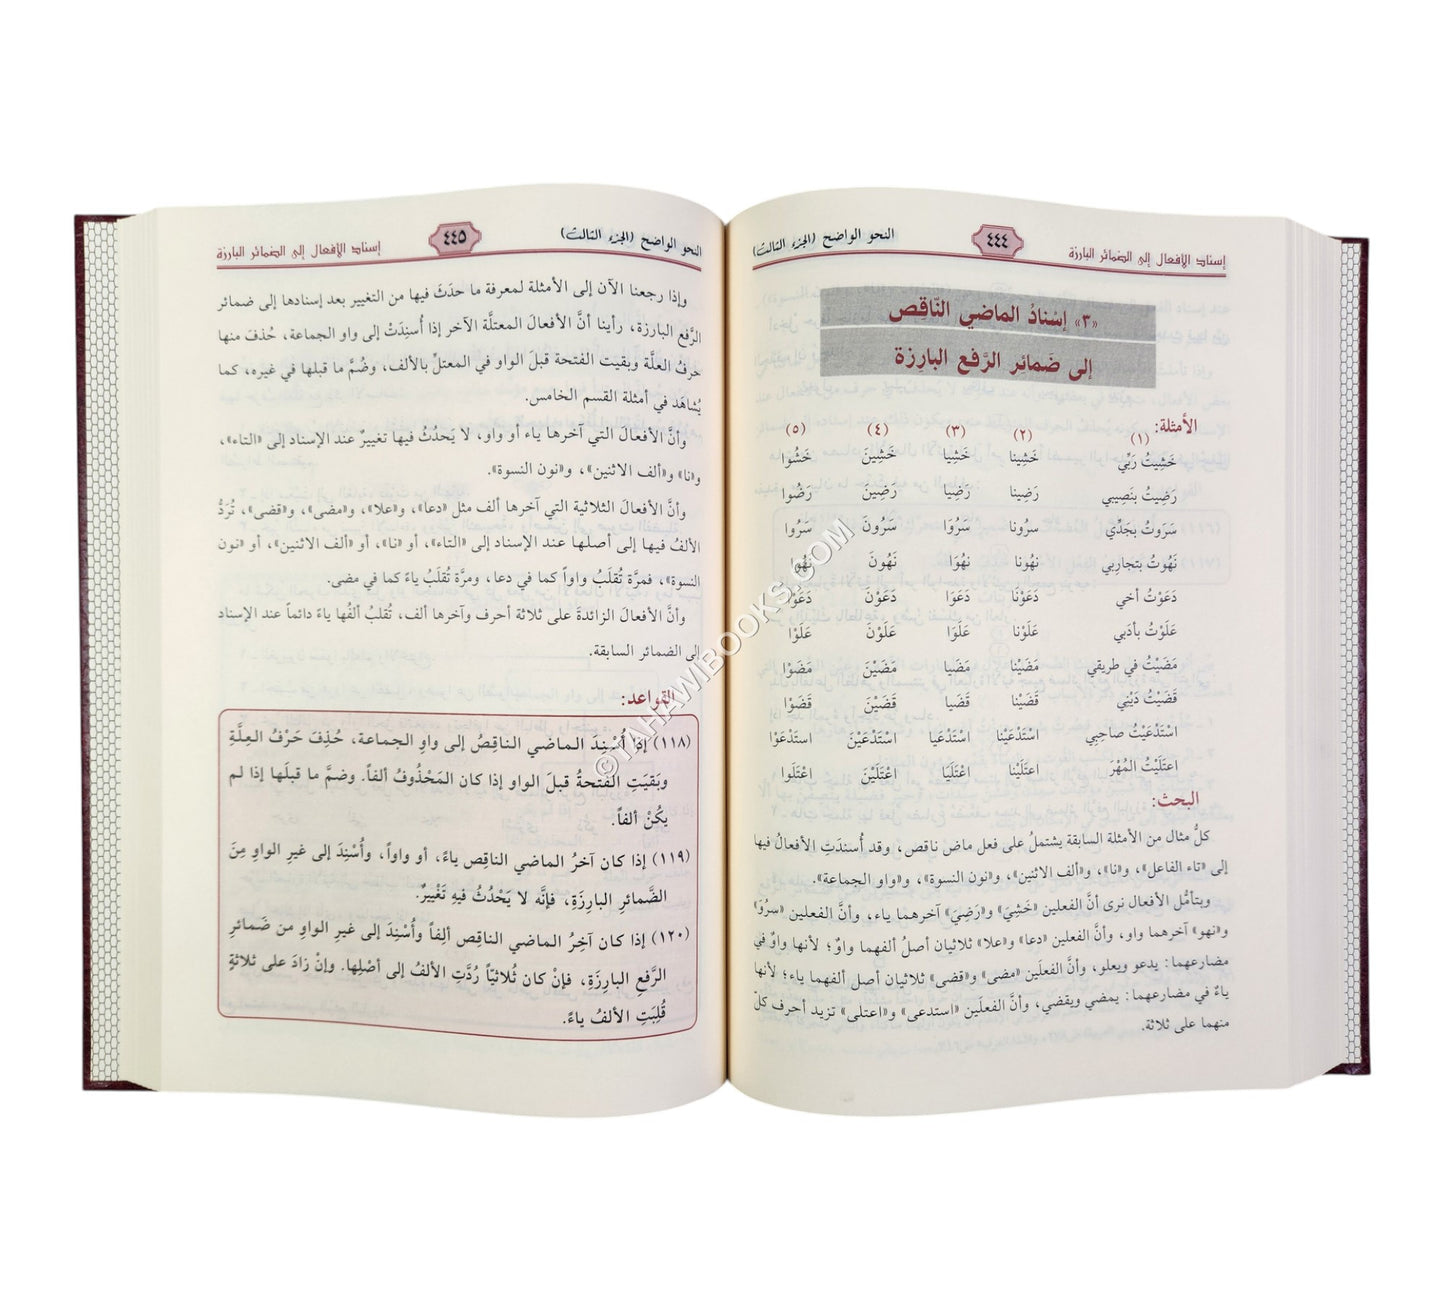 إسناد الأفعال إلى الضمائر البارزة ٤٤٤ النحو الواضح (الجزء الثالث)
«٣» إسْنادُ الماضي النّاقِص
إلى ضَمائِر الرَّفع البارِزة
الأمثلة:
(١) (٢) (٣) (٤) (٥)
خَشِيتُ رَبِّي خَشِينا خَشِيا خَشِينَ خَشُوا
رَضِيتُ بنَصِيبي رَضِينا رَضِيَا رَضِينَ رَضُوا
سَرَوتُ بجَدِّي سرُونا سَرُوَا سَرُونَ سَرُوا
نَهُوتُ بتجارِبي نهُونا نهُوَا نَهُونَ نَهُو
دَعَوْتُ أخي دَعَوْنَا دَعَوَا دَعَوْنَ دَعَوْا
عَلَوْتُ بأدَبي عَلَوْنا عَلَوَا عَلَوْنَ عَلَوْا
مَضَيْتُ في طريقي مَضَيْنا مَضَيا مَضَيْنَ مَضَوْا
قَضَيْتُ دَيْنِي قَضَيْنا قَضَيا قَضَيْنَ قَضَوْا
اسْتَدْعَيْتُ صاحِبي اسْتَدْعَيْنا اسْتَدْعَيا اسْتَدْعَيْنَ استدْعَوْا
اعتَلَيْتُ المُهْرَ اعتَلَيْنا اعْتَلَيَا اعْتَلَيْنَ اعْتَلَوا
البحث:
كلُّ مثال من الأمثلة السابقة يشتملُ على فعل ماض ناقص، وقد أُسندَتِ الأفعالُ فيها
إلى «تاء الفاعل»، و«نا»، و«ألف الاثنين»، و«نون النسوة»، و«واو الجماعة».
وبتأمُّل الأفعال نرى أنَّ الفعلين «خَشِيَ» و«رَضِيَ» آخرهما ياء، وأنَّ الفعلين «سرُوَ»
و«نهو» آخرهما واو، وأنَّ الفعلَين «دعا» و«علا» ثلاثيان أصلُ ألفهما واوٌ؛ لأنها واوٌ في
مضارعهما: يدعو ويعلو، وأنَّ الفعلَين «مضى» و«قضى» ثلاثيان أصل ألفهما ياء؛ لأنها
ياءٌ في مضارعهما: يمضي ويقضي، وأنَّ الفعلَين «استدعى» و«اعتلى» تزيد أحرف كلّ
منهما على ثلاثة.
النحو الواضح (الجزء الثالث) ٤٤٥ إسناد الأفعال إلى الضمائر البارزة
وإذا رجعنا الآن إلى الأمثلة لمعرفة ما حدَثَ فيها من التغيير بعد إسنادها إلى ضمائر
الرَّفع البارزة، رأينا أنَّ الأفعالَ المعتلَّة الآخر إذا أُسنِدَتْ إلى واو الجماعة، حُذفَ منها
حرفُ العلَّة وبقيت الفتحة قبلَ الواو في المعتلِّ بالألف، وضُمَّ ما قبلها في غيره، كما
يُشاهَد في أمثلة القسم الخامس.
وأنَّ الأفعالَ التي آخرها ياء أو واو، لا يَحدُثُ فيها تغييرٌ عند الإسناد إلى «التاء»،
و«نا» و«ألف الاثنين»، و«نون النسوة».
وأنَّ الأفعالَ الثلاثية التي آخرها ألف مثل «دعا»، و«علا»، و«مضى»، و«قضى»، تُرَدُّ
الألفُ فيها إلى أصلها عند الإسناد إلى «التاء»، أو «نا»، أو «ألف الاثنين»، أو «نون
النسوة»، فمرَّة تُقلَبُ واواً كما في دعا، ومرَّة تُقلَبُ ياءً كما في مضى.
وأنَّ الأفعالَ الزائدةَ على ثلاثة أحرف وآخرها ألف، تُقلبُ ألفُها ياءً دائماً عند الإسناد
إلى الضمائر السابقة.
القواعد:
(١١٨) إذا أُسْنِدَ الماضي الناقِصُ إلى واوِ الجماعة، حُذِفَ حَرْفُ العِلَّةِ
وبَقيَتِ الفتحةُ قبلَ الواو إذا كان المَحْذُوفُ ألفاً. وضمَّ ما قبلَها إذا لم
يكُنْ ألفاً.
(١١٩) إذا كان آخرُ الماضي الناقِص ياءً، أو واواً، وأُسْنِدَ إلى غيرِ الواوِ مِنَ
الضَّمائرِ البارِزَةِ، فإنَّه لا يَحْدُثُ فيهِ تَغْييرٌ.
(١٢٠) إذا كان آخِرُ الماضي الناقِص ألِفاً وأُسْنِدَ إلى غيرِ الواوِ من ضَمائرِ
الرَّفعِ البارِزَةِ، فإنْ كان ثُلاثيّاً رُدَّتِ الألفُ إلى أصْلِها. وإنْ زادَ على ثلاثةٍ
قُلِبَتِ الألفُ ياءً.
©TAHAWIBOOKS.COM